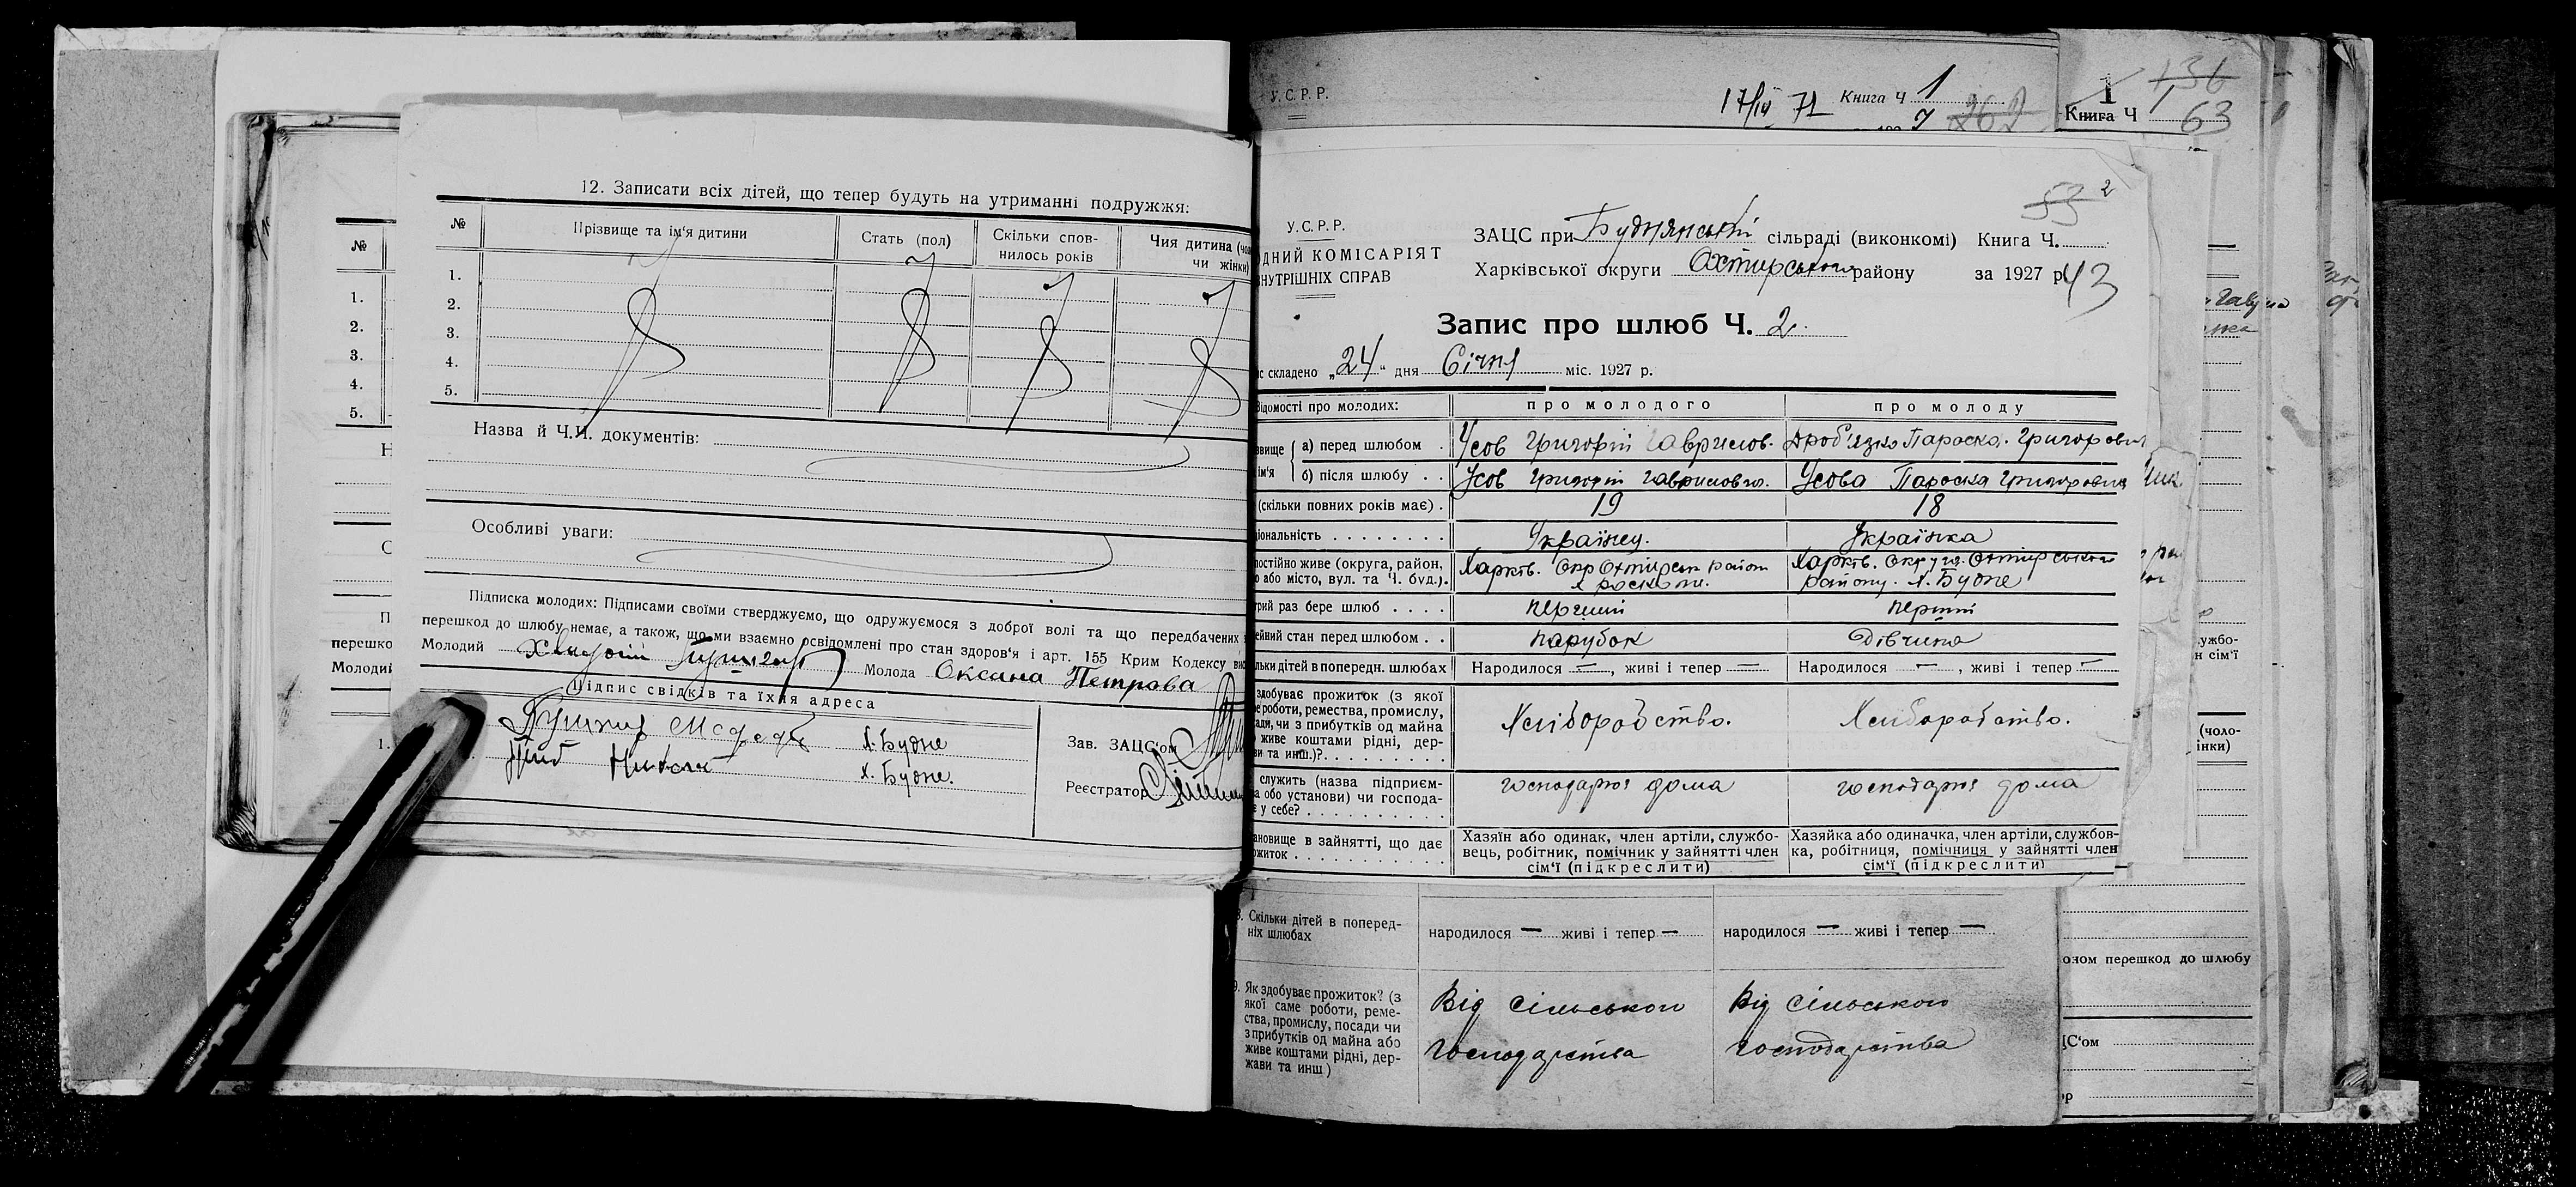 12. Записати всіх дітей, що тепер будуть на утриманні подружжя:
№ Прізвище та ім'я дитини Стать (пол) Скільки спов-
нилось років Чия дитина
чи жінки)
1.
2.
3.
4.
5.
Назва й Ч.Ч. документів:
Особливі уваги:
Підписка молодих: Підписами своїми стверджуємо, що одружуємося з доброї волі та що передбачених
перешкод до шлюбу немає, а також, що ми взаємно освідомлені про стан здоров'я і арт. 155 Крим Кодексу
Молодий Молода Оксана Петрова
Підпис свідків та їхня адреса
х. Будне
х. Будне.
Зав. ЗАЦС'ом
Реєстратор
№
1.
2.
3.
4.
5.
1.
У.С.Р.Р.
17/IV 71 Книга Ч 1
7 262
1 136
Книга Ч 1
63
53 2
У.С.Р.Р.
КОМІСАРІЯТ
СПРАВ
ЗАЦС при Буднянській сільраді (виконкомі) Книга Ч.
Харківської округи Охтирського району за 1927 р.
43
Запис про шлюб Ч. 2.
складено „24" дня Січня міс. 1927 р.
Відомості про молодих: про молодого про молоду
а) перед шлюбом Усов Григорій Гаврилов. Дроб'язко Параска Григоровна
ім'я б) після шлюбу Усов Григорій Гаврилович. Усова Параска Григоровна
(скільки повних років має) 19 18
Українец. Українка
постійно живе (округа, район,
або місто, вул. та Ч. буд.) Харків. Окр Охтирськ район
Харків. округа Охтирського
району. х. Будне
раз бере шлюб перший перший
стан перед шлюбом парубок дівчина
дітей в попередн. шлюбах Народилося —, живі і тепер — Народилося —, живі і тепер —
здобуває прожиток (з якої
роботи, ремества, промислу,
чи з прибутків од майна
живе коштами рідні, дер-
та инш.)? Хліборобство. Хліборобство.
служить (назва підприєм-
або установи) чи господа-
у себе? господарює дома господарює дома
в зайнятті, що дає
Хазяїн або одинак, член артіли, службо-
вець, робітник, помічник у зайнятті член
сім'ї (підкреслити)
Хазяйка або одиначка, член артіли, службов-
ка, робітниця, помічниця у зайнятті член
сім'ї (підкреслити)
8. Скільки дітей в поперед-
ніх шлюбах народилося — живі і тепер — народилося — живі і тепер —
9. Як здобуває прожиток? (з
якої саме роботи, реме-
ства, промислу, посади чи
з прибутків од майна або
живе коштами рідні, дер-
жави та инш)
Від сільського
господарства
Від сільського
господарства
сім'ї
перешкод до шлюбу